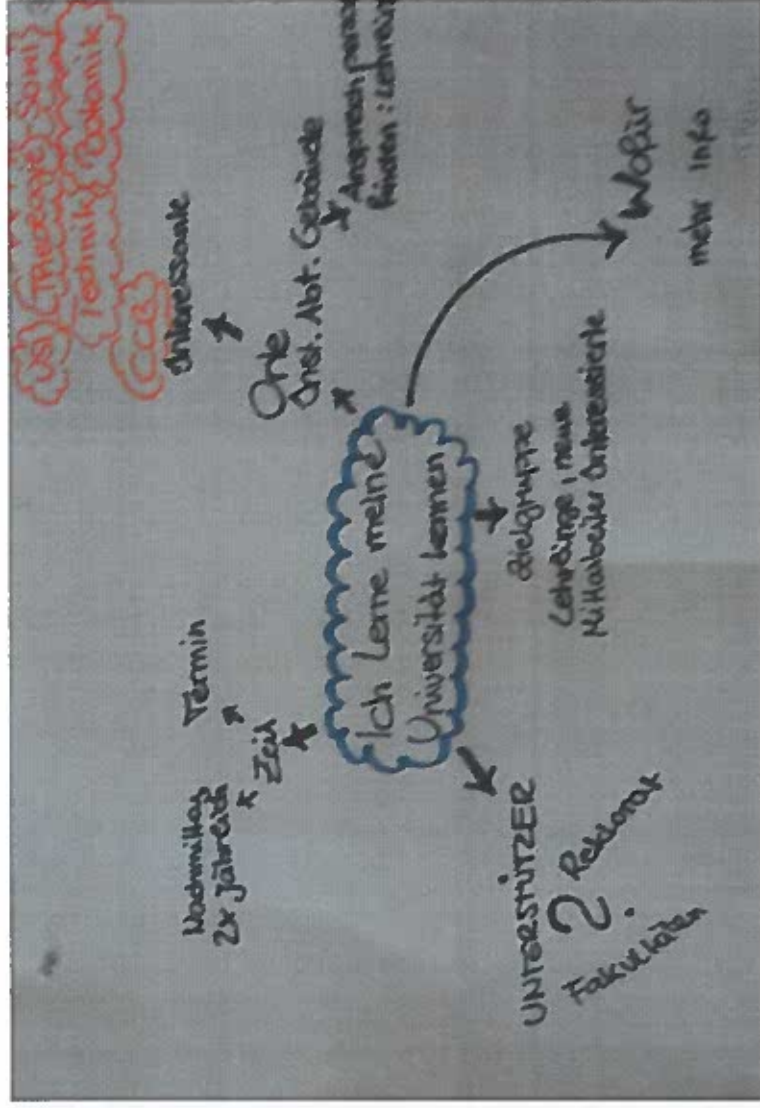 USI Theologie Sowi
Technik Botanik
CCB
Interessante
Orte
Inst. Abt. Gebäude
Ansprechpers
finden: Lehrein
Termin
Zeit
Nachmittag
2x jährlich
Ich lerne meine
Universität kennen
Zielgruppe
Lehrlinge, neue
Mitarbeiter Interessierte
Wofür
mehr Info
UNTERSTÜTZER
?
Rektorat
Fakultäten